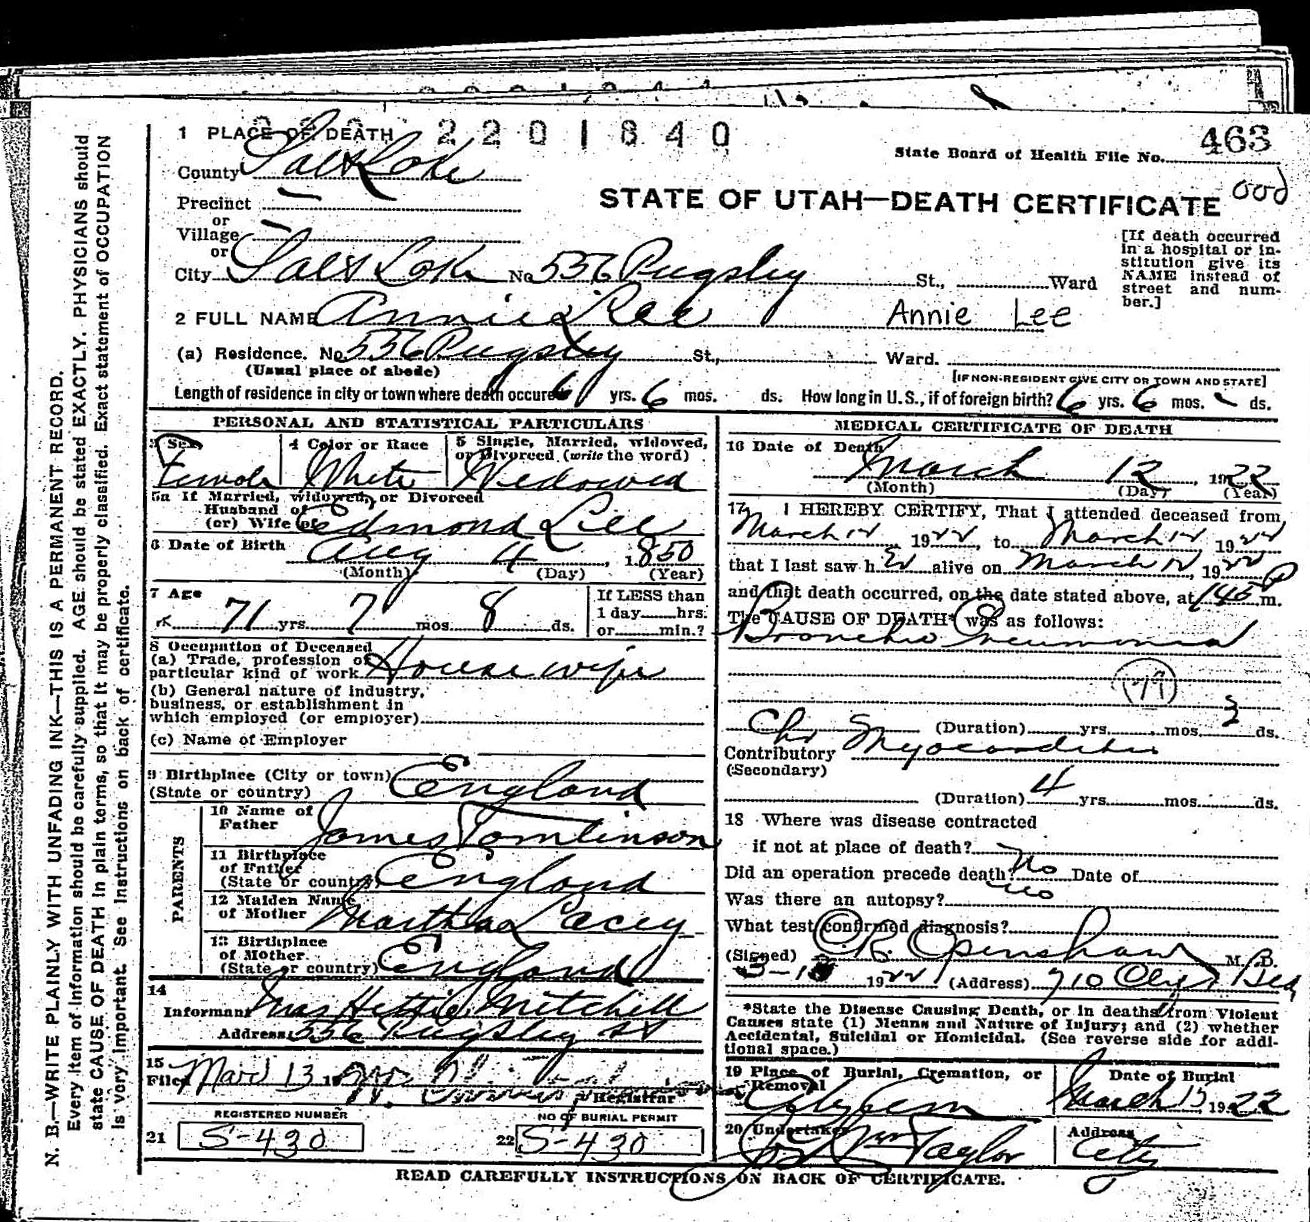 2201840
463
1 PLACE OF DEATH
State Board of Health File No.
County Salt Lake
Precinct
or
Village
or
City Salt Lake No. 556 Pugsley St., Ward
STATE OF UTAH—DEATH CERTIFICATE
[If death occurred
in a hospital or in-
stitution give its
NAME instead of
street and num-
ber.]
2 FULL NAME Annie Lee Annie Lee
(a) Residence. No. 556 Pugsley St., Ward.
(Usual place of abode)
[IF NON-RESIDENT GIVE CITY OR TOWN AND STATE]
Length of residence in city or town where death occured 6 yrs. 6 mos. ds. How long in U.S., if of foreign birth? 6 yrs. 6 mos. - ds.
PERSONAL AND STATISTICAL PARTICULARS
3 Sex
Female
4 Color or Race
White
5 Single, Married, widowed,
or Divorced (write the word)
Widowed
5a If Married, widowed, or Divorced
Husband of
(or) Wife of Edmond Lee
6 Date of Birth Aug 4, 1850
(Month) (Day) (Year)
7 Age
71 yrs. 7 mos. 8 ds.
If LESS than
1 day hrs.
or min.?
8 Occupation of Deceased
(a) Trade, profession or
particular kind of work. House wife
(b) General nature of industry,
business, or establishment in
which employed (or employer)
(c) Name of Employer
9 Birthplace (City or town)
(State or country) England
PARENTS
10 Name of
Father James Tomlinson
11 Birthplace
of Father
(State or country) England
12 Maiden Name
of Mother Martha Lacey
13 Birthplace
of Mother
(State or country) England
14
Informant Mrs Hettie Mitchell
Address 556 Pugsley St
15
Filed Mar 13
Registrar
REGISTERED NUMBER
21 S-430
NO OF BURIAL PERMIT
22 S-430
MEDICAL CERTIFICATE OF DEATH
16 Date of Death
March 12, 1922
(Month) (Day) (Year)
17 I HEREBY CERTIFY, That I attended deceased from
March 12, 1922, to March 12 1922
that I last saw her alive on March 12, 1922
and that death occurred, on the date stated above, at 145 P m.
The CAUSE OF DEATH* was as follows:
Broncho Pneumonia
(Duration) yrs. mos. 3 ds.
Contributory Chr Myocarditis
(Secondary)
(Duration) 4 yrs. mos. ds.
18 Where was disease contracted
if not at place of death?
Did an operation precede death? No Date of
Was there an autopsy? no
What test confirmed diagnosis?
(Signed) C R Openshaw M. D.
1922 (Address) 710 Bld
*State the Disease Causing Death, or in deaths from Violent
Causes state (1) Means and Nature of Injury; and (2) whether
Accidental, Suicidal or Homicidal. (See reverse side for addi-
tional space.)
19 Place of Burial, Cremation, or
Removal
City Cem
Date of Burial
March 15 1922
20 Undertaker
Jos Wm Taylor
Address
City
READ CAREFULLY INSTRUCTIONS ON BACK OF CERTIFICATE.
N. B—WRITE PLAINLY WITH UNFADING INK—THIS IS A PERMANENT RECORD.
Every item of information should be carefully supplied. AGE should be stated EXACTLY. PHYSICIANS should
state CAUSE OF DEATH in plain terms, so that it may be properly classified. Exact statement of OCCUPATION
is very important. See Instructions on back of certificate.